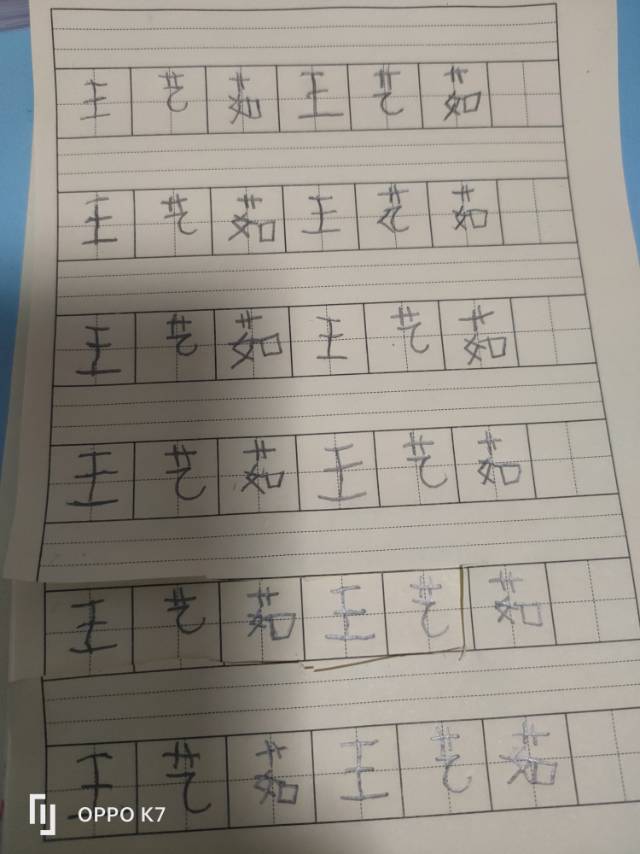 王艺茹王艺茹
王艺茹王艺茹
王艺茹王艺茹
王艺茹王艺茹
王艺茹王艺茹
王艺茹王艺茹
OPPO K7